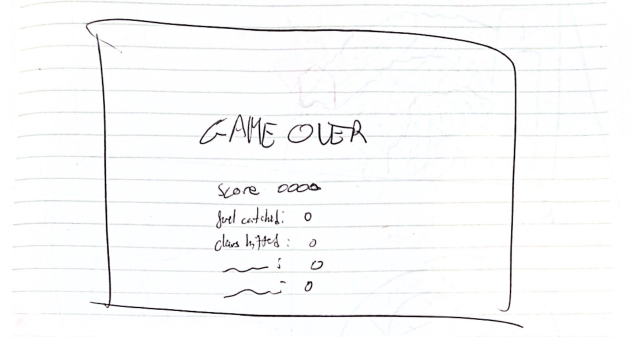 GAME OVER
Score 0000
fuel catched: 0
claws hitted: 0
: 0
: 0